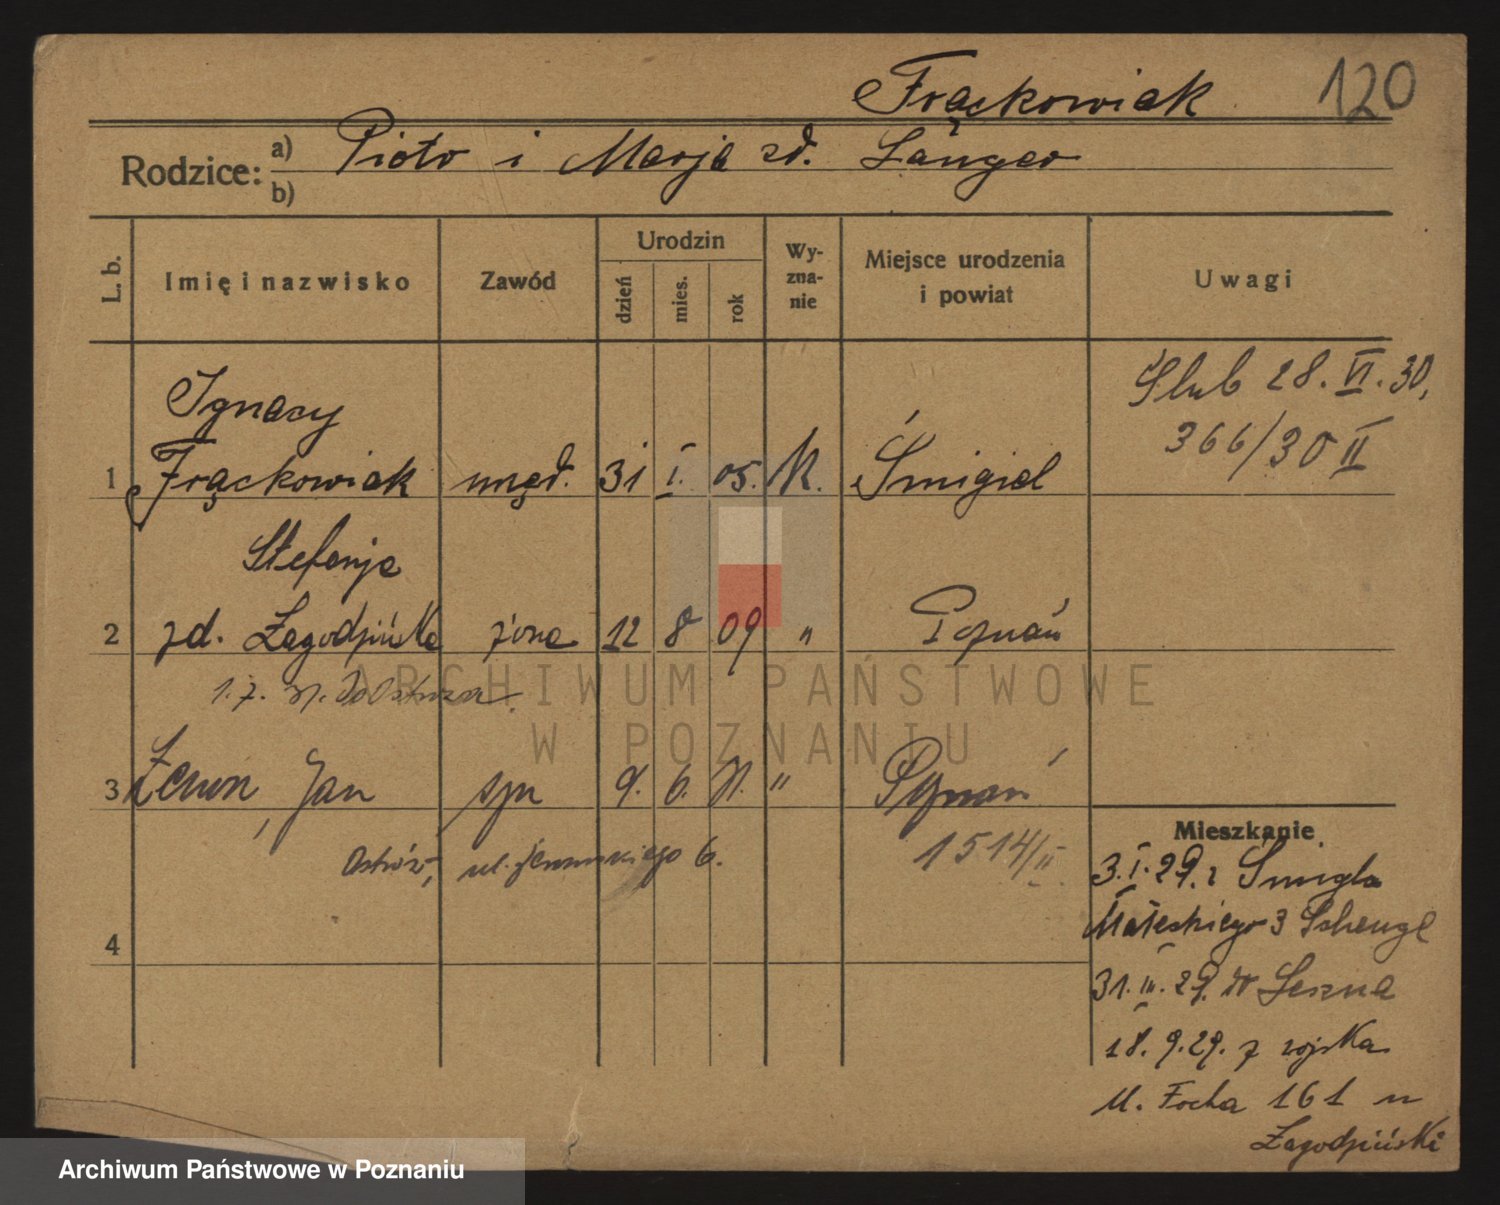 Frąckowiak 120
Rodzice: a) Piotr i Marja zd. Langer
b)
L. b. Imię i nazwisko Zawód Urodzin dzień mies. rok Wyznanie Miejsce urodzenia i powiat Uwagi
Ślub 28. VI. 30,
366/30 II
Ignacy
1 Frąckowiak urzęd. 31 I. 05. K. Śmigiel
Stefanja
2 zd. Zagodzińska żona 12 8 09 " Poznań
3 Zenon, Jan syn 9. 6. 31. " Poznań
Ostrów, ul. 6. 1514/II
4
Mieszkanie
3. I. 29. z Śmigla
Małeckiego 3
31. III. 29. Leszna
18. 9. 29. z wojska
M. Focha 161 u
Zagodziński
ARCHIWUM PAŃSTWOWE
W POZNANIU
Archiwum Państwowe w Poznaniu